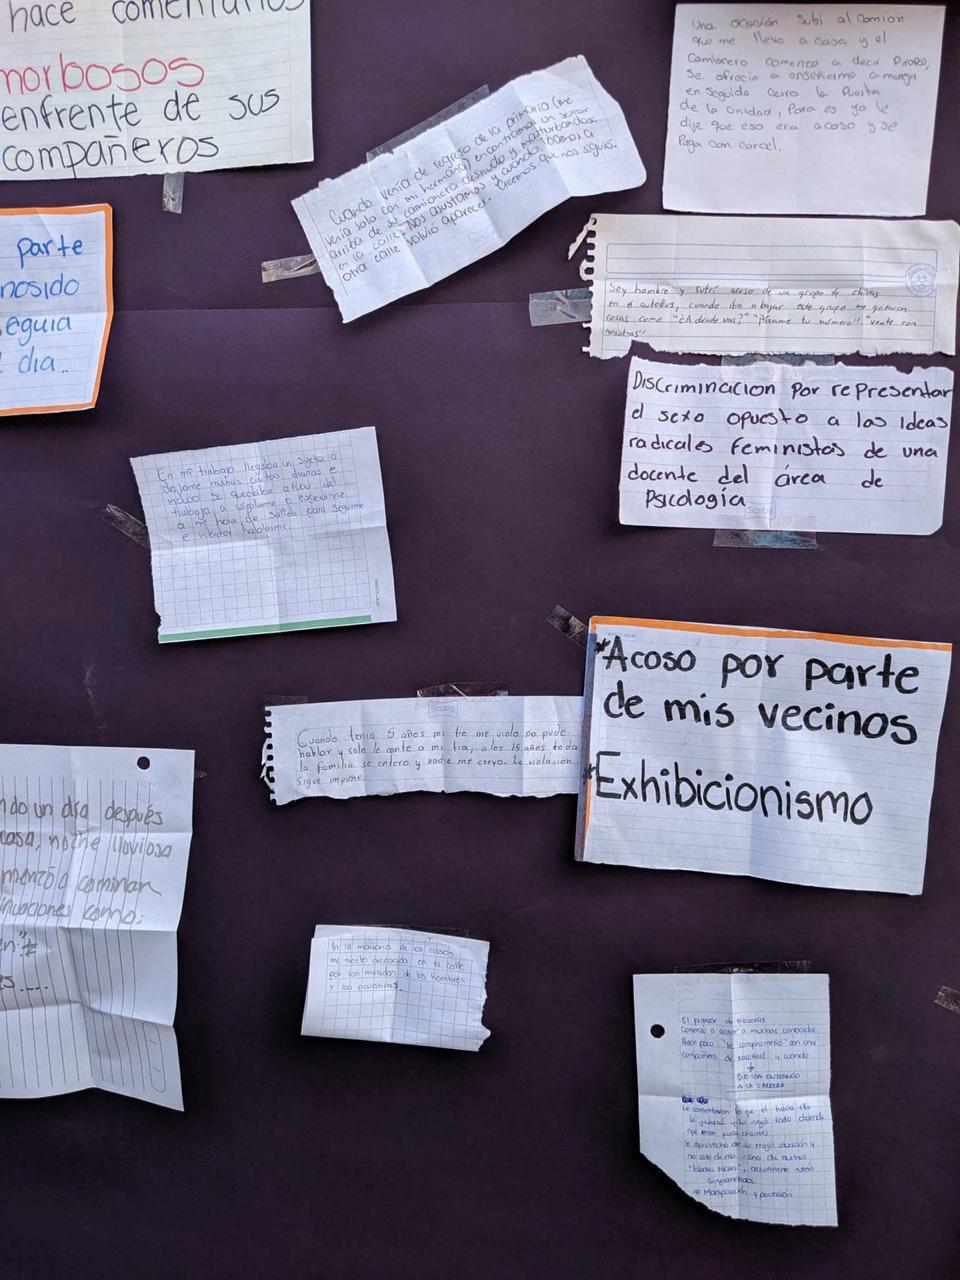 hace comentarios
morbosos
enfrente de sus
compañeros
Una ocasión subi al camión
que me lleva a casa y el
Camionero comenzo a decir Piropos,
Se ofrecio a enseñarme a manejar
en seguida cerro la Puerta
de la Unidad, Para eso yo le
dije que eso era acoso y se
Paga con carcel.
Cuando venía de regreso de la primaria (me
venía solo con mi hermana) encontramos un señor
arriba de su camioneta desnudo y masturbandose
en la calle. Nos asustamos y cuando íbamos a
otra calle volvió aparecer. Creemos que nos siguió.
parte
nosido
eguia
dia..
Soy hombre y sufrí acoso de un grupo de chicas
en el autobus, cuando iba a bajar este grupo me gritaron
cosas como "¿A dónde vas?" "Pásame tu número!!" "vente con
nosotras!!
Discriminacion por representar
el sexo opuesto a las ideas
radicales feministas de una
docente del área de
Psicología
En mi trabajo llegaba un sujeto a
dejarme muchas cartas diarias e
incluso se quedaba afuera del
trabajo a vigilarme o esperarme
a mi hora de salida para seguirme
e intentar hablarme.
*Acoso por parte
de mis vecinos
*Exhibicionismo
Cuando tenia 5 años mi tio me violo no pude
hablar y solo le conte a mi tia, a los 15 años toda
la familia se entero y nadie me creyo. La violación
sigue impune.
ndo un día después
casa, noche lluviosa
menzó a caminar
inuaciones como:
s.....
En la mayoria de los casos
me siento acosada en la calle
por las miradas de los hombres
y las palabras.
El profesor de filosofía
Comenzó a acosar a muchas conocidas.
Hace poco "se comprometió" con una
compañera de facultad y cuando
QUE IBA ENTRANDO
A LA CARRERA
le comentaron lo que el hacía ella
lo y lo negó todo diciendo
que eran puros chismes.
Se aprovechó de su frágil situación y
no solo de ella, sino de muchas
# Manipulación y perversión